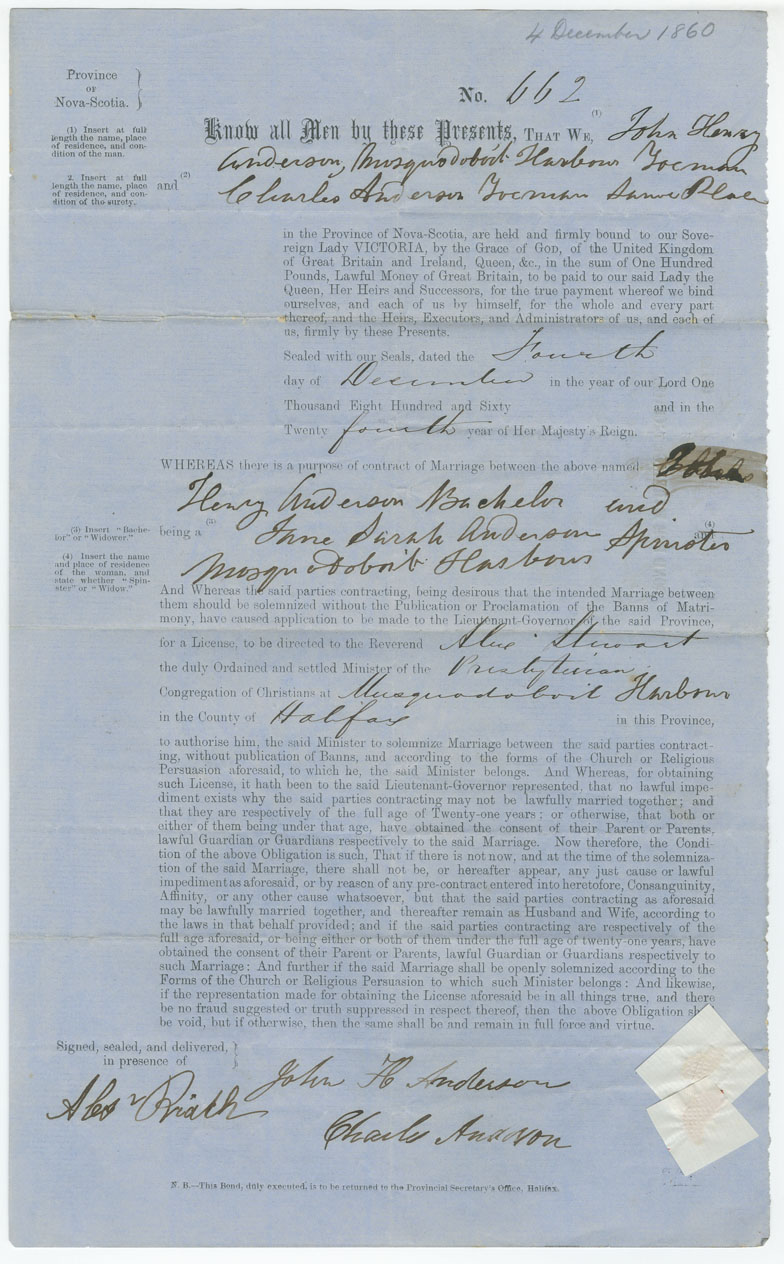 4 December 1860
Province
OF
Nova-Scotia.
No. 662
(1) Insert at full
length the name, place
of residence, and con-
dition of the man.
Know all Men by these Presents, THAT WE, (1) John Henry
Anderson, Musquodoboit Harbour Yoeman
2. Insert at full
length the name, place
of residence, and con-
dition of the surety.
and (2) Charles Anderson Yoeman Same Place
in the Province of Nova-Scotia, are held and firmly bound to our Sove-
reign Lady VICTORIA, by the Grace of GOD, of the United Kingdom
of Great Britain and Ireland, Queen, &c., in the sum of One Hundred
Pounds, Lawful Money of Great Britain, to be paid to our said Lady the
Queen, Her Heirs and Successors, for the true payment whereof we bind
ourselves, and each of us by himself, for the whole and every part
thereof, and the Heirs, Executors, and Administrators of us, and each of
us, firmly by these Presents.
Sealed with our Seals, dated the Fourth
day of December in the year of our Lord One
Thousand Eight Hundred and Sixty and in the
Twenty fourth year of Her Majesty's Reign.
WHEREAS there is a purpose of contract of Marriage between the above named
Henry Anderson Bachelor and
(3) Insert "Bache-
lor" or "Widower."
being a (3) Jane Sarah Anderson Spinster (4) and
(4) Insert the name
and place of residence
of the woman, and
state whether "Spin-
ster" or "Widow."
Musquodoboit Harbour
And Whereas the said parties contracting, being desirous that the intended Marriage between
them should be solemnized without the Publication or Proclamation of the Banns of Matri-
mony, have caused application to be made to the Lieutenant-Governor of the said Province,
for a License, to be directed to the Reverend Alex Stewart
the duly Ordained and settled Minister of the Presbyterian
Congregation of Christians at Musquodoboit Harbour
in the County of Halifax in this Province,
to authorise him, the said Minister to solemnize Marriage between the said parties contract-
ing, without publication of Banns, and according to the forms of the Church or Religious
Persuasion aforesaid, to which he, the said Minister belongs. And Whereas, for obtaining
such License, it hath been to the said Lieutenant-Governor represented, that no lawful impe-
diment exists why the said parties contracting may not be lawfully married together; and
that they are respectively of the full age of Twenty-one years; or otherwise, that both or
either of them being under that age, have obtained the consent of their Parent or Parents,
lawful Guardian or Guardians respectively to the said Marriage. Now therefore, the Condi-
tion of the above Obligation is such, That if there is not now, and at the time of the solemniza-
tion of the said Marriage, there shall not be, or hereafter appear, any just cause or lawful
impediment as aforesaid, or by reason of any pre-contract entered into heretofore, Consanguinity,
Affinity, or any other cause whatsoever, but that the said parties contracting as aforesaid
may be lawfully married together, and thereafter remain as Husband and Wife, according to
the laws in that behalf provided; and if the said parties contracting are respectively of the
full age aforesaid, or being either or both of them under the full age of twenty-one years, have
obtained the consent of their Parent or Parents, lawful Guardian or Guardians respectively to
such Marriage: And further if the said Marriage shall be openly solemnized according to the
Forms of the Church or Religious Persuasion to which such Minister belongs: And likewise,
if the representation made for obtaining the License aforesaid be in all things true, and there
be no fraud suggested or truth suppressed in respect thereof, then the above Obligation
be void, but if otherwise, then the same shall be and remain in full force and virtue.
Signed, sealed, and delivered,
in presence of
John H Anderson
Charles Anderson
N. B.—This Bond, duly executed, is to be returned to the Provincial Secretary's Office, Halifax.